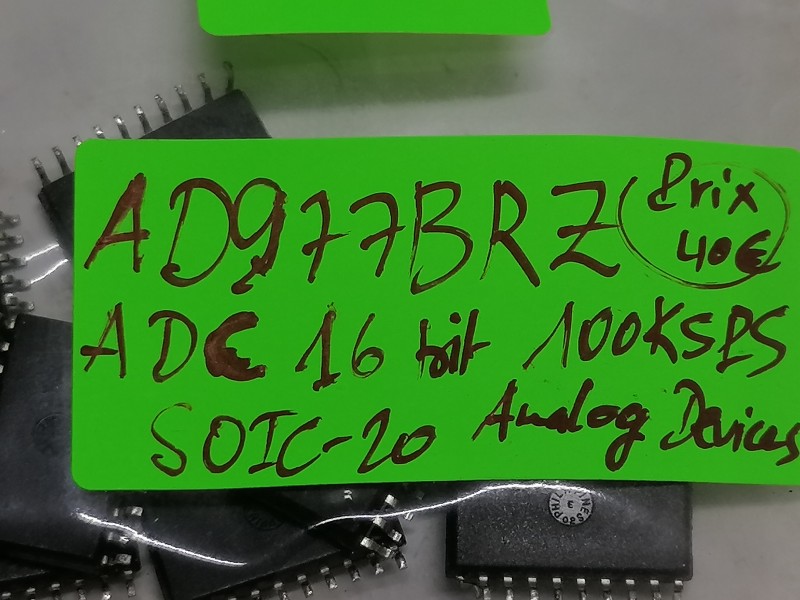 AD977BRZ
Prix
40€
ADC 16 bit 100KSPS
SOIC-20 Analog Devices